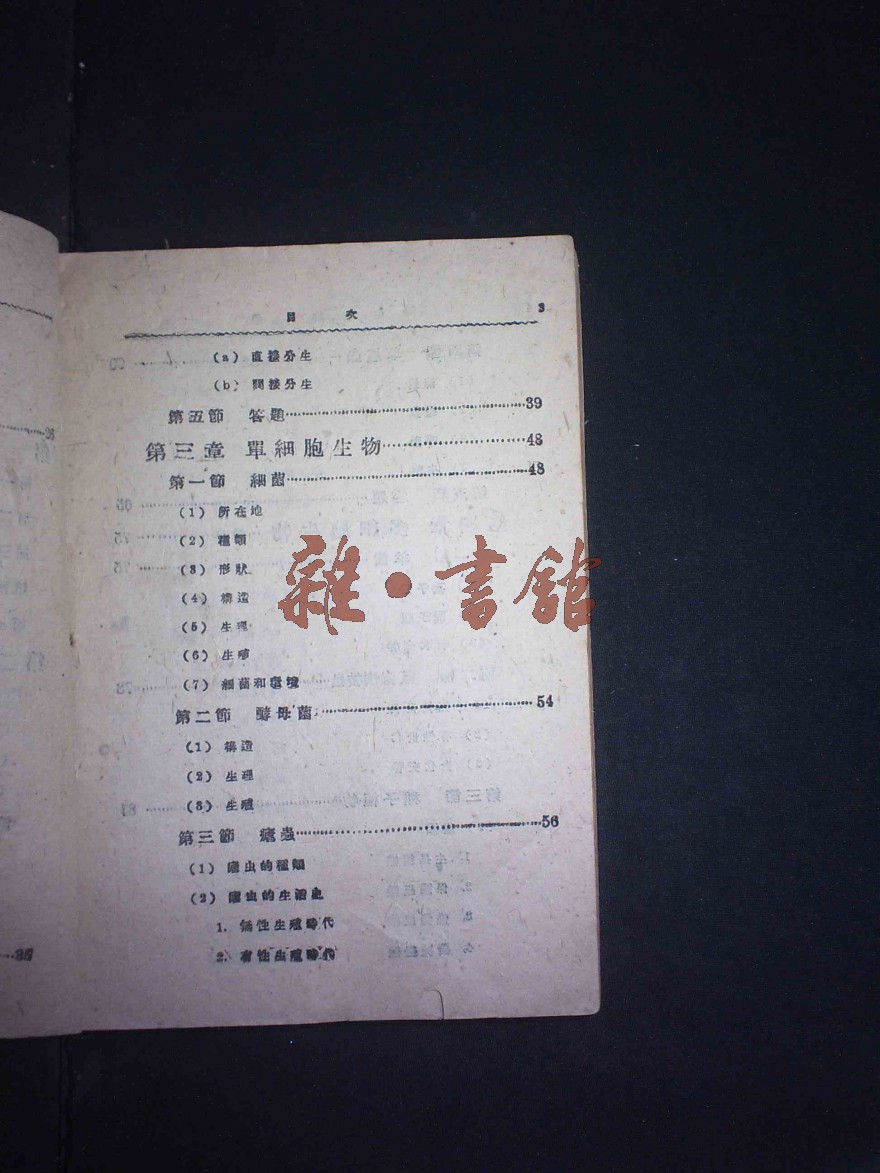 目 次 3
(a) 直接分生
(b) 間接分生
第五節 答題 39
第三章 單細胞生物 48
第一節 細菌 48
(1) 所在地
(2) 種類
(3) 形狀
(4) 構造
(5) 生理
(6) 生殖
(7) 細菌和環境
第二節 酵母菌 54
(1) 構造
(2) 生理
(3) 生殖
第三節 瘧蟲 56
(1) 瘧虫的種類
(2) 瘧虫的生活史
1. 無性生殖時代
2. 有性生殖時代
雜·書館